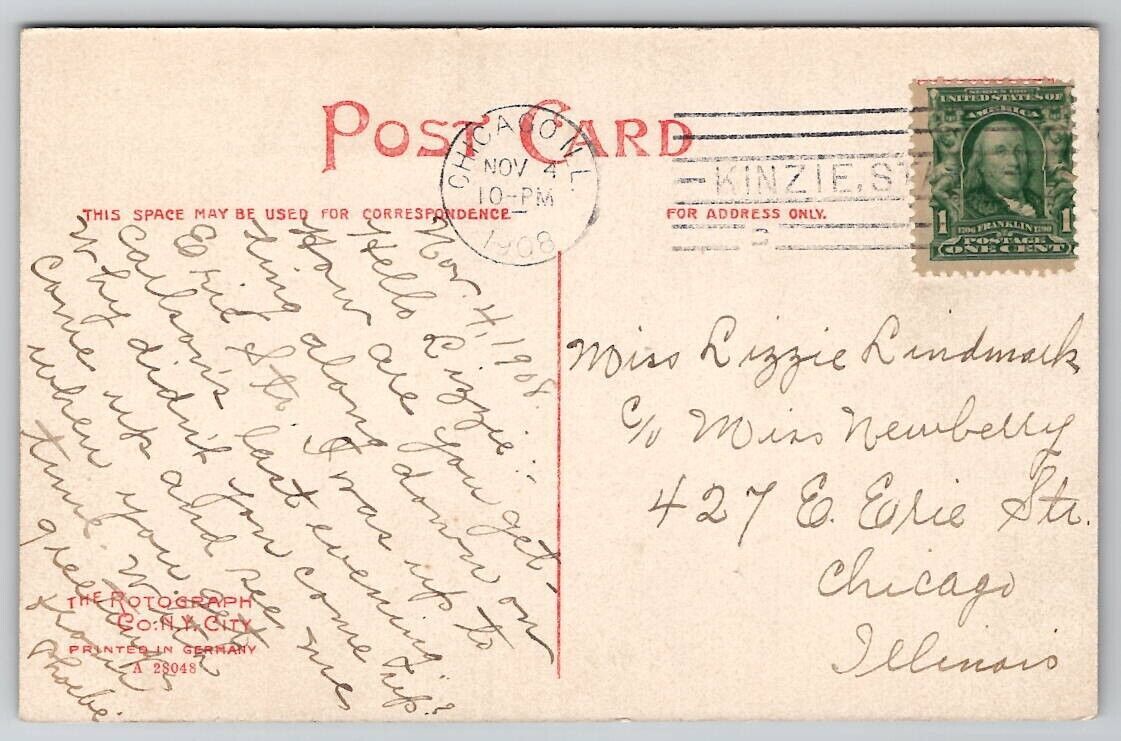 POST CARD
CHICAGO ILL.
NOV 4
10-PM
1908
KINZIE, STA
SERIES 1902
UNITED STATES OF
AMERICA
1 1
1706 FRANKLIN 1790
POSTAGE
ONE CENT
THIS SPACE MAY BE USED FOR CORRESPONDENCE
FOR ADDRESS ONLY.
Nov. 4, 1908.
Hello Lizzie:-
How are you get-
ting along down on
Erie Str. I was up to
Carlson's last evening.
Why didn't you come up?
Come up and see me
when you get
time. With
greetings
from
Phoebe
Miss Lizzie Lindmark
c/o Miss Newberry
427 E. Erie Str.
Chicago
Illinois
THE ROTOGRAPH
CO. N.Y. CITY
PRINTED IN GERMANY
A 28048